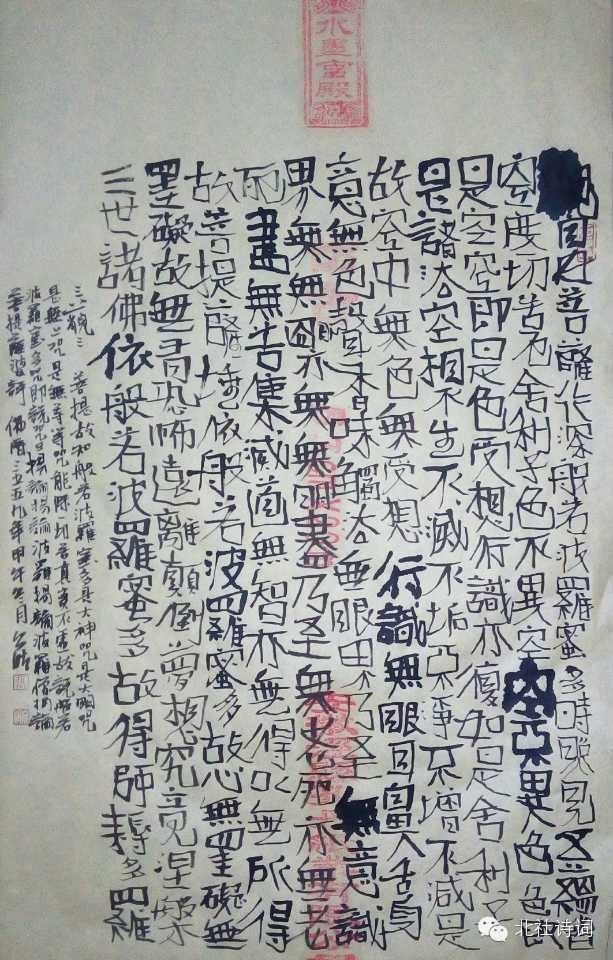 水墨宮殿
自在菩薩行深般若波羅蜜多時照見五蘊皆
空度切苦厄舍利子色不異空空不異色色即
是空空即是色受想行識亦復如是舍利子
是諸法空相不生不滅不垢不淨不增不減是
故空中無色無受想行識無眼耳鼻舌身
意無色聲香味觸法無眼界乃至無意識
界無無明亦無無明盡乃至無老死亦無老
死盡無苦集滅道無智亦無得以無所得
故菩提薩埵依般若波羅蜜多故心無罣礙無
罣礙故無有恐怖遠離顛倒夢想究竟涅槃
三世諸佛依般若波羅蜜多故得阿耨多羅
三藐三菩提故知般若波羅蜜多是大神咒是大明咒
是無上咒是無等等咒能除一切苦真實不虛故説般若
波羅蜜多咒即説咒曰揭諦揭諦波羅揭諦波羅僧揭諦
菩提薩婆訶 佛曆二五五九年甲午冬月
北社诗词